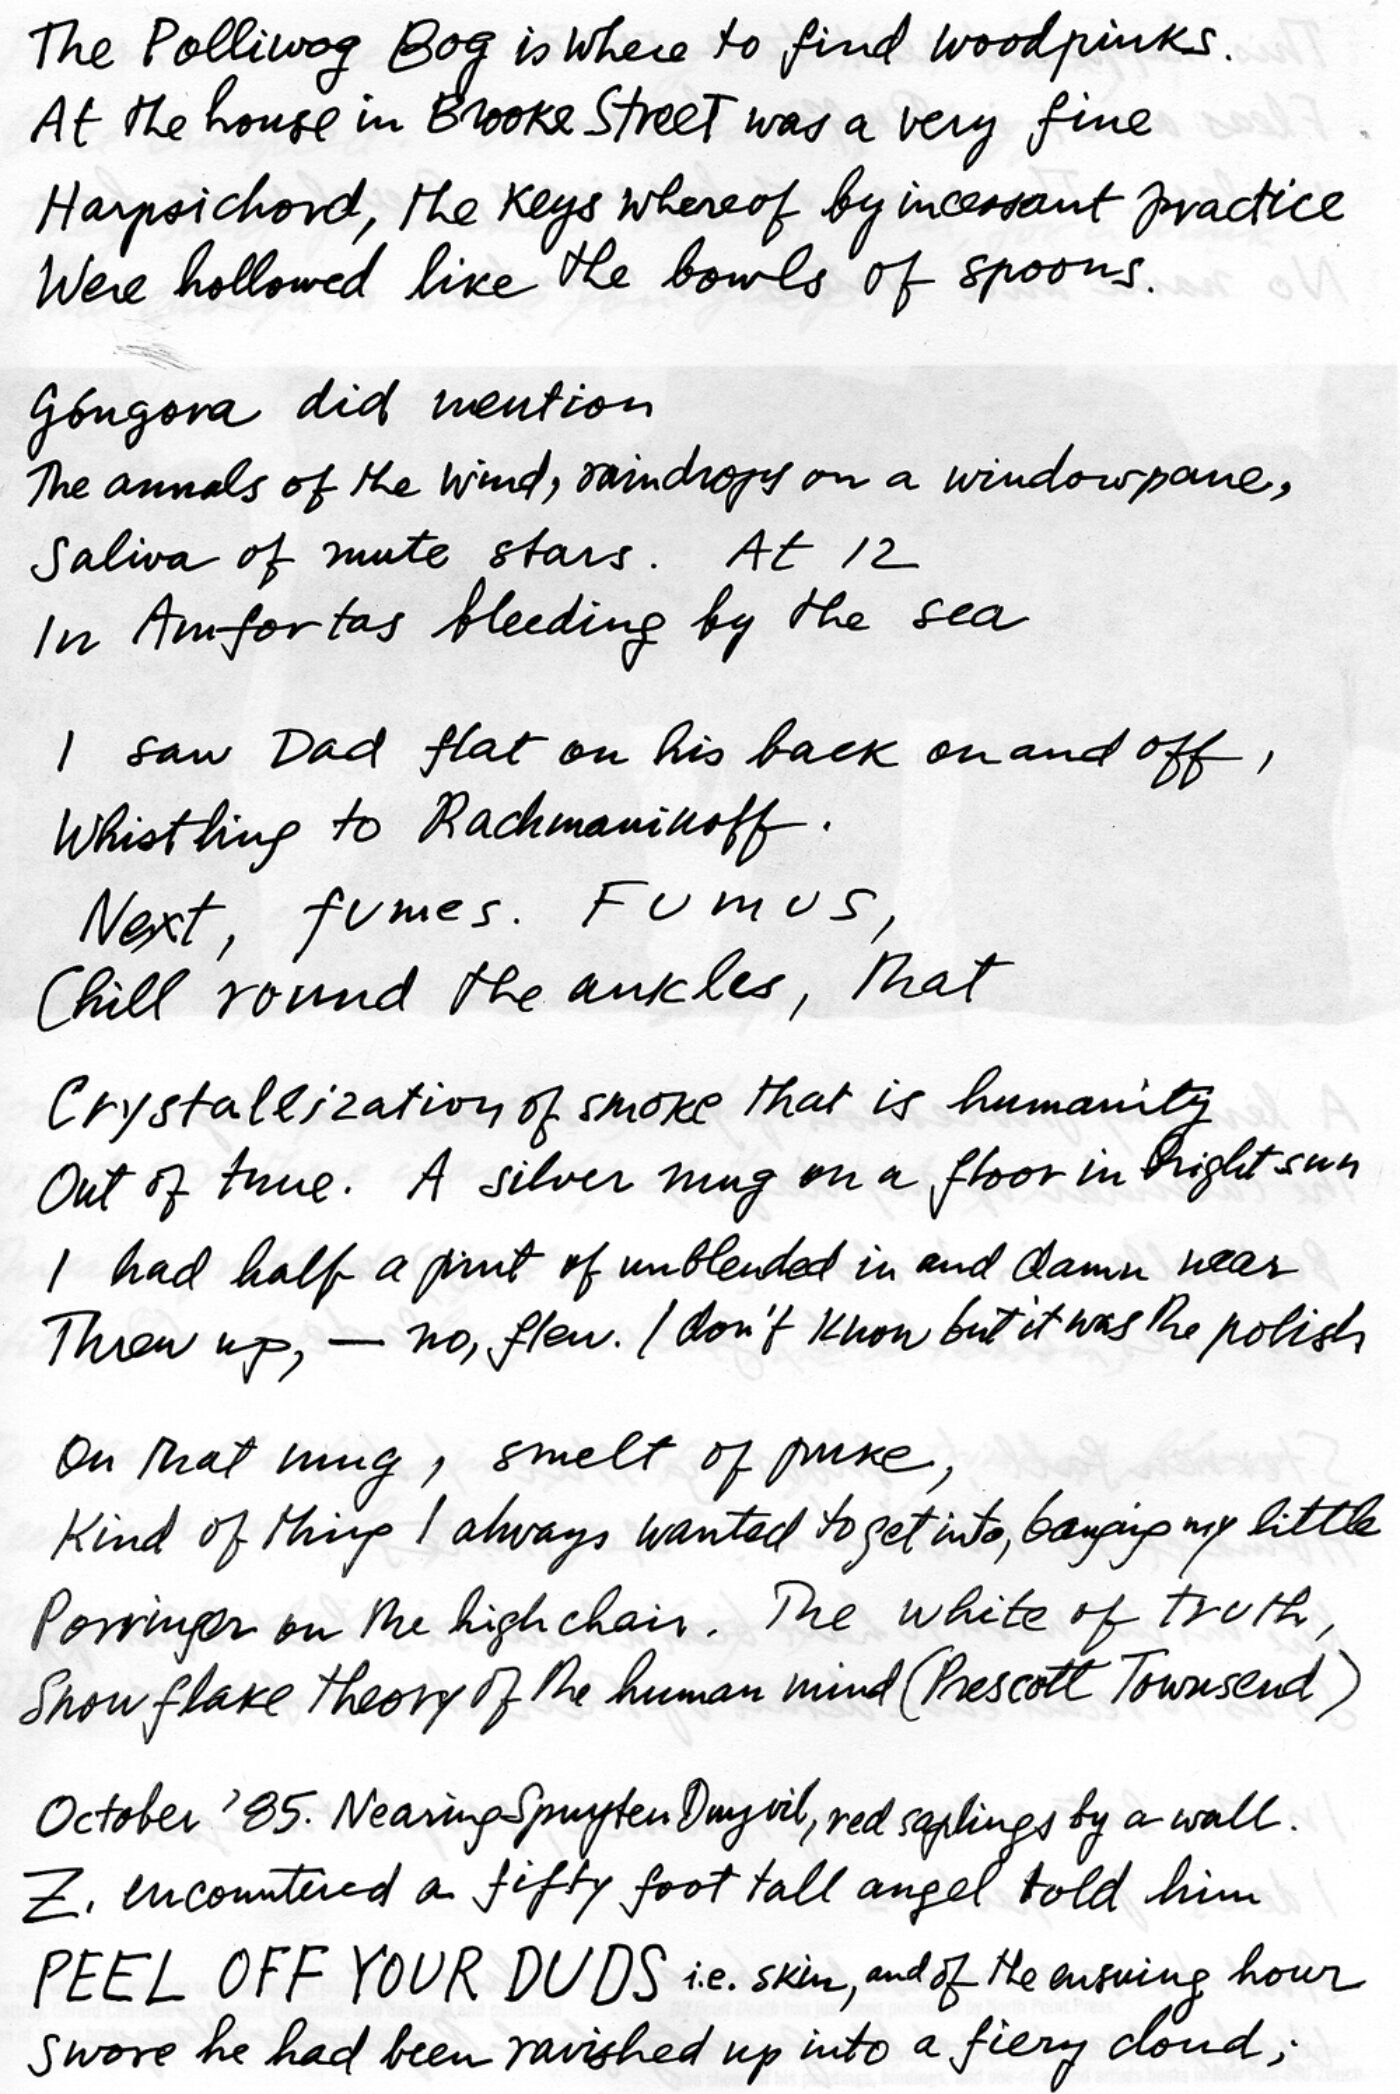 The Polliwog Bog is where to find woodpinks.
At the house in Brooke Street was a very fine
Harpsichord, the keys whereof by incessant practice
Were hollowed like the bowls of spoons.
Góngora did mention
The annals of the wind, raindrops on a windowpane,
Saliva of mute stars. At 12
In Amfortas bleeding by the sea
I saw Dad flat on his back on and off,
Whistling to Rachmaninoff.
Next, fumes. FUMUS,
Chill round the ankles, that
Crystallization of smoke that is humanity
Out of true. A silver mug on a floor in bright sun
I had half a pint of unblended in and damn near
Threw up, — no, flew. I don't know but it was the polish
On that mug, smelt of puke,
Kind of thing I always wanted to get into, banging my little
Porringer on the highchair. The white of truth,
Snowflake theory of the human mind (Prescott Townsend)
October '85. Nearing Spuyten Duyvil, red saplings by a wall.
Z. encountered a fifty foot tall angel told him
PEEL OFF YOUR DUDS i.e. skin, and of the ensuing hour
swore he had been ravished up into a fiery cloud;